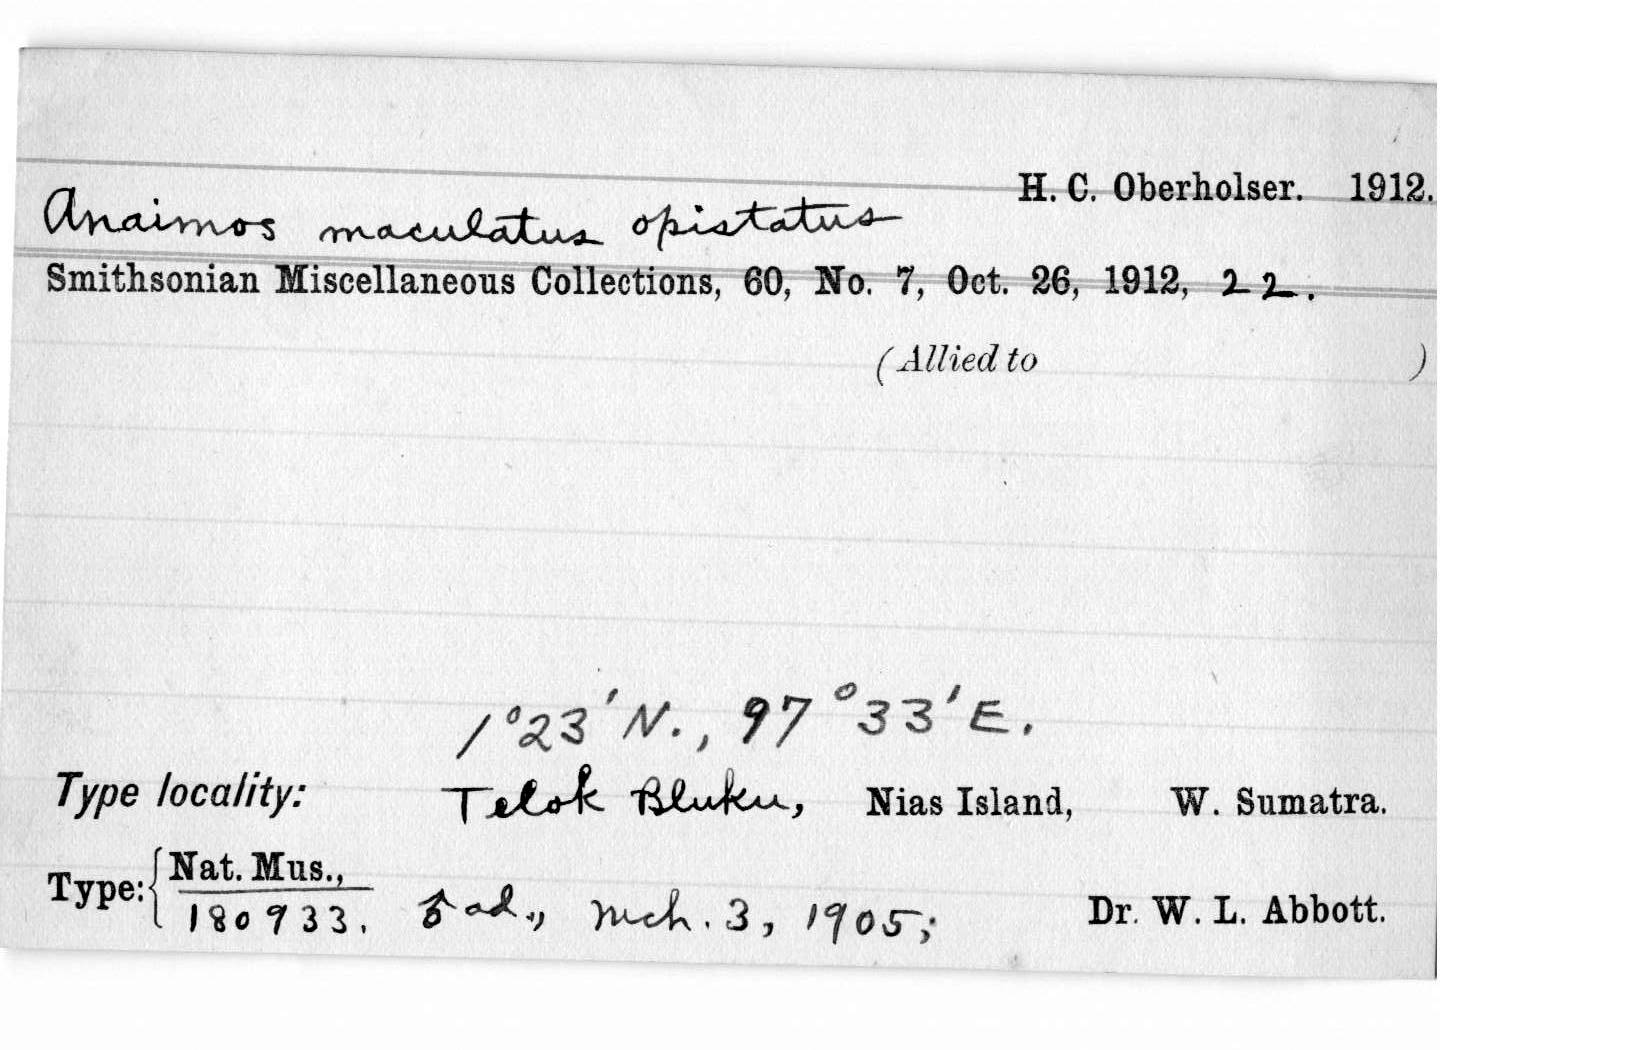 H. C. Oberholser. 1912.
Anaimos maculatus opistatus
Smithsonian Miscellaneous Collections, 60, No. 7, Oct. 26, 1912, 22.
(Allied to )
1°23′N., 97°33′E.
Type locality: Telok Bluku, Nias Island, W. Sumatra.
Type: { Nat. Mus.,
180933. ♂ ad., Mch. 3, 1905; Dr. W. L. Abbott.